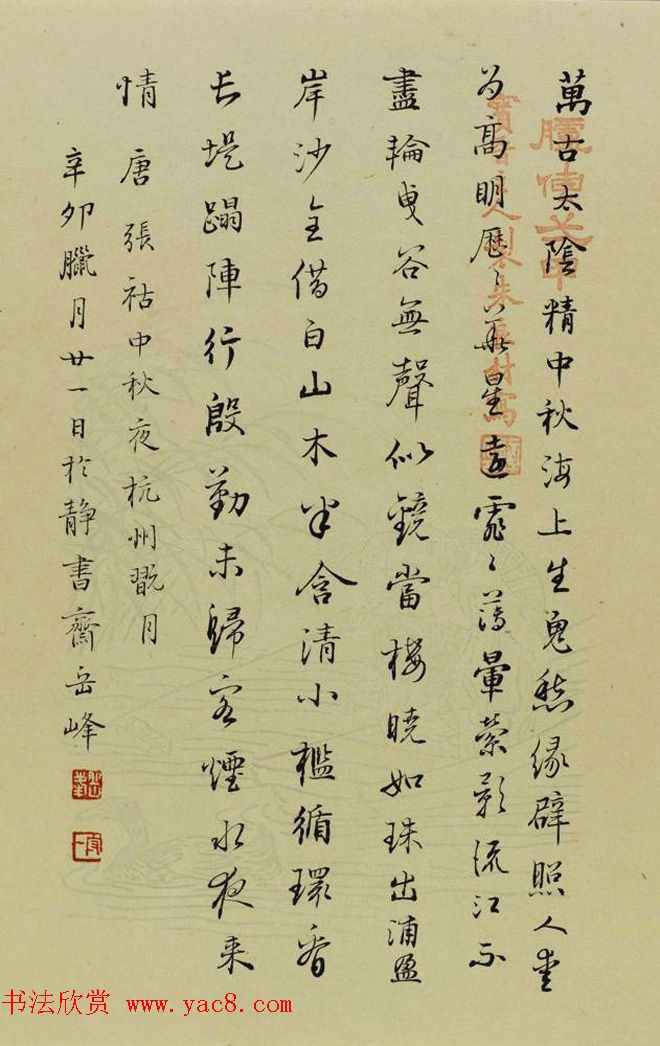 萬古太陰精中秋海上生鬼愁緣辟照人愛
为高明歷々華星遠霏々薄暈縈影流江不
盡輪曳谷無聲似鏡當樓曉如珠出浦盈
岸沙全借白山木半含清小檻循環看
長堤蹋陣行殷勤未歸客煙水夜来
情 唐張祜中秋夜杭州翫月
辛卯臘月廿一日於静書齋岳峰
书法欣赏 www.yac8.com